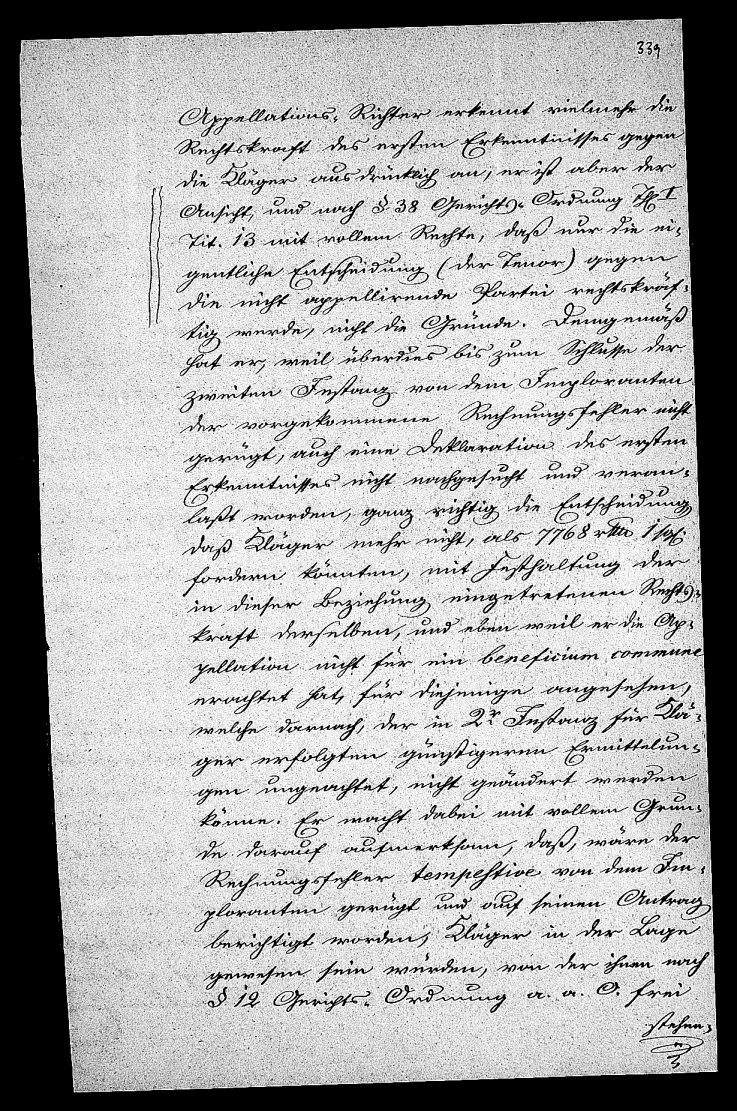 339
Appellations-Richter erkennt vielmehr die
Rechtskraft des ersten Erkenntnisses gegen
die Kläger ausdrücklich an, er ist aber der
Ansicht, und nach § 38 Gerichts-Ordnung Thl I
Tit. 13 mit vollem Rechte, daß nur die ei-
gentliche Entscheidung (der Tenor) gegen
die nicht appellirende Partei rechtskräf-
tig werde, nicht die Gründe. Demgemäß
hat er, weil überdies bis zum Schlusse der
zweiten Instanz von dem Imploranten
der vorgekommene Rechnungsfehler nicht
gerügt, auch eine Deklaration des ersten
Erkenntnisses nicht nachgesucht und veran-
laßt worden, ganz richtig die Entscheidung
daß Kläger mehr nicht, als 7768 rthl 1 sgl:
fordern könnten, mit Festhaltung der
in dieser Beziehung eingetretenen Rechts-
kraft derselben, und eben weil er die Ap-
pellation nicht für ein beneficium commune
erachtet hat, für diejenige angesehen,
welche darnach, der in 2r Instanz für Klä-
ger erfolgten günstigeren Ermittelun-
gen ungeachtet, nicht geändert werden
könne. Er macht dabei mit vollem Grun-
de darauf aufmerksam, daß, wäre der
Rechnungsfehler tempestive von dem Im-
ploranten gerügt und auf seinen Antrag
berichtigt worden, Kläger in der Lage
gewesen sein würden, von der ihnen nach
§ 12 Gerichts-Ordnung a. a. O. frei
stehen-